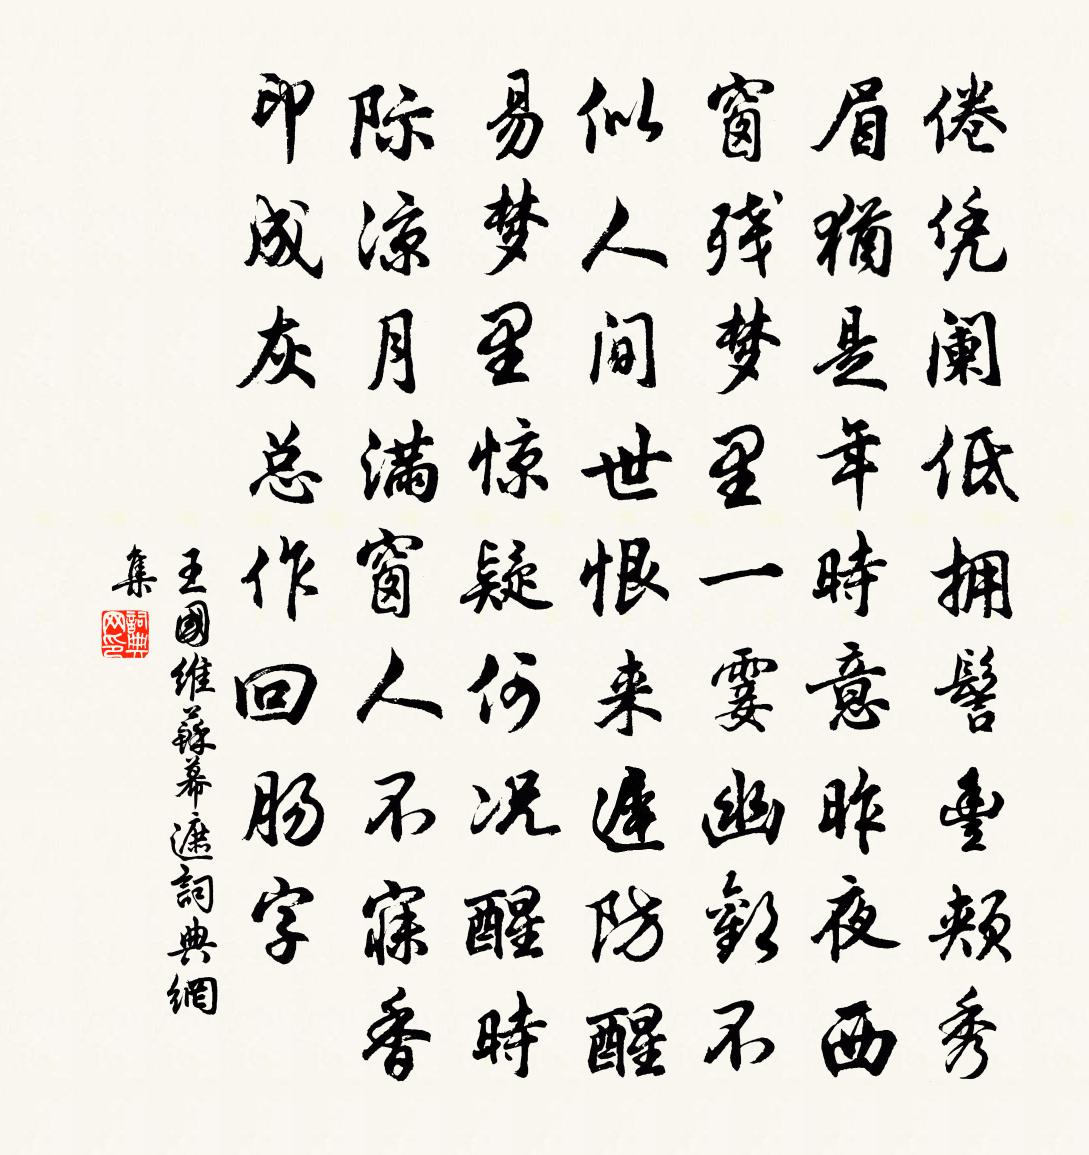 倦凭阑低拥髻丰颊秀
眉猶是年時意昨夜西
窗残梦里一霎幽歡不
似人间世恨来遲防醒
易梦里惊疑何况醒時
际凉月满窗人不寐香
印成灰总作回肠字
王國维蘇幕遮詞典網
集
詞典网印